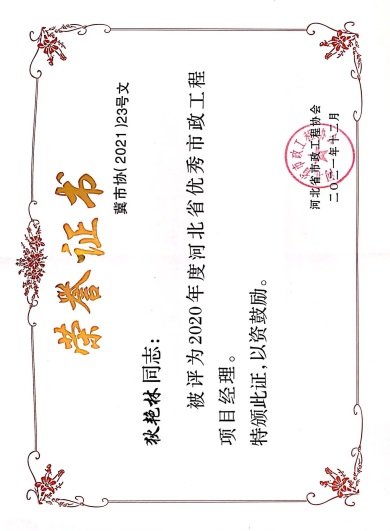 荣誉证书
冀市协(2021)23号文
狄艳林同志：
被评为2020年度河北省优秀市政工程
项目经理。
特颁此证，以资鼓励。
河北省市政工程协会
二〇二一年十二月